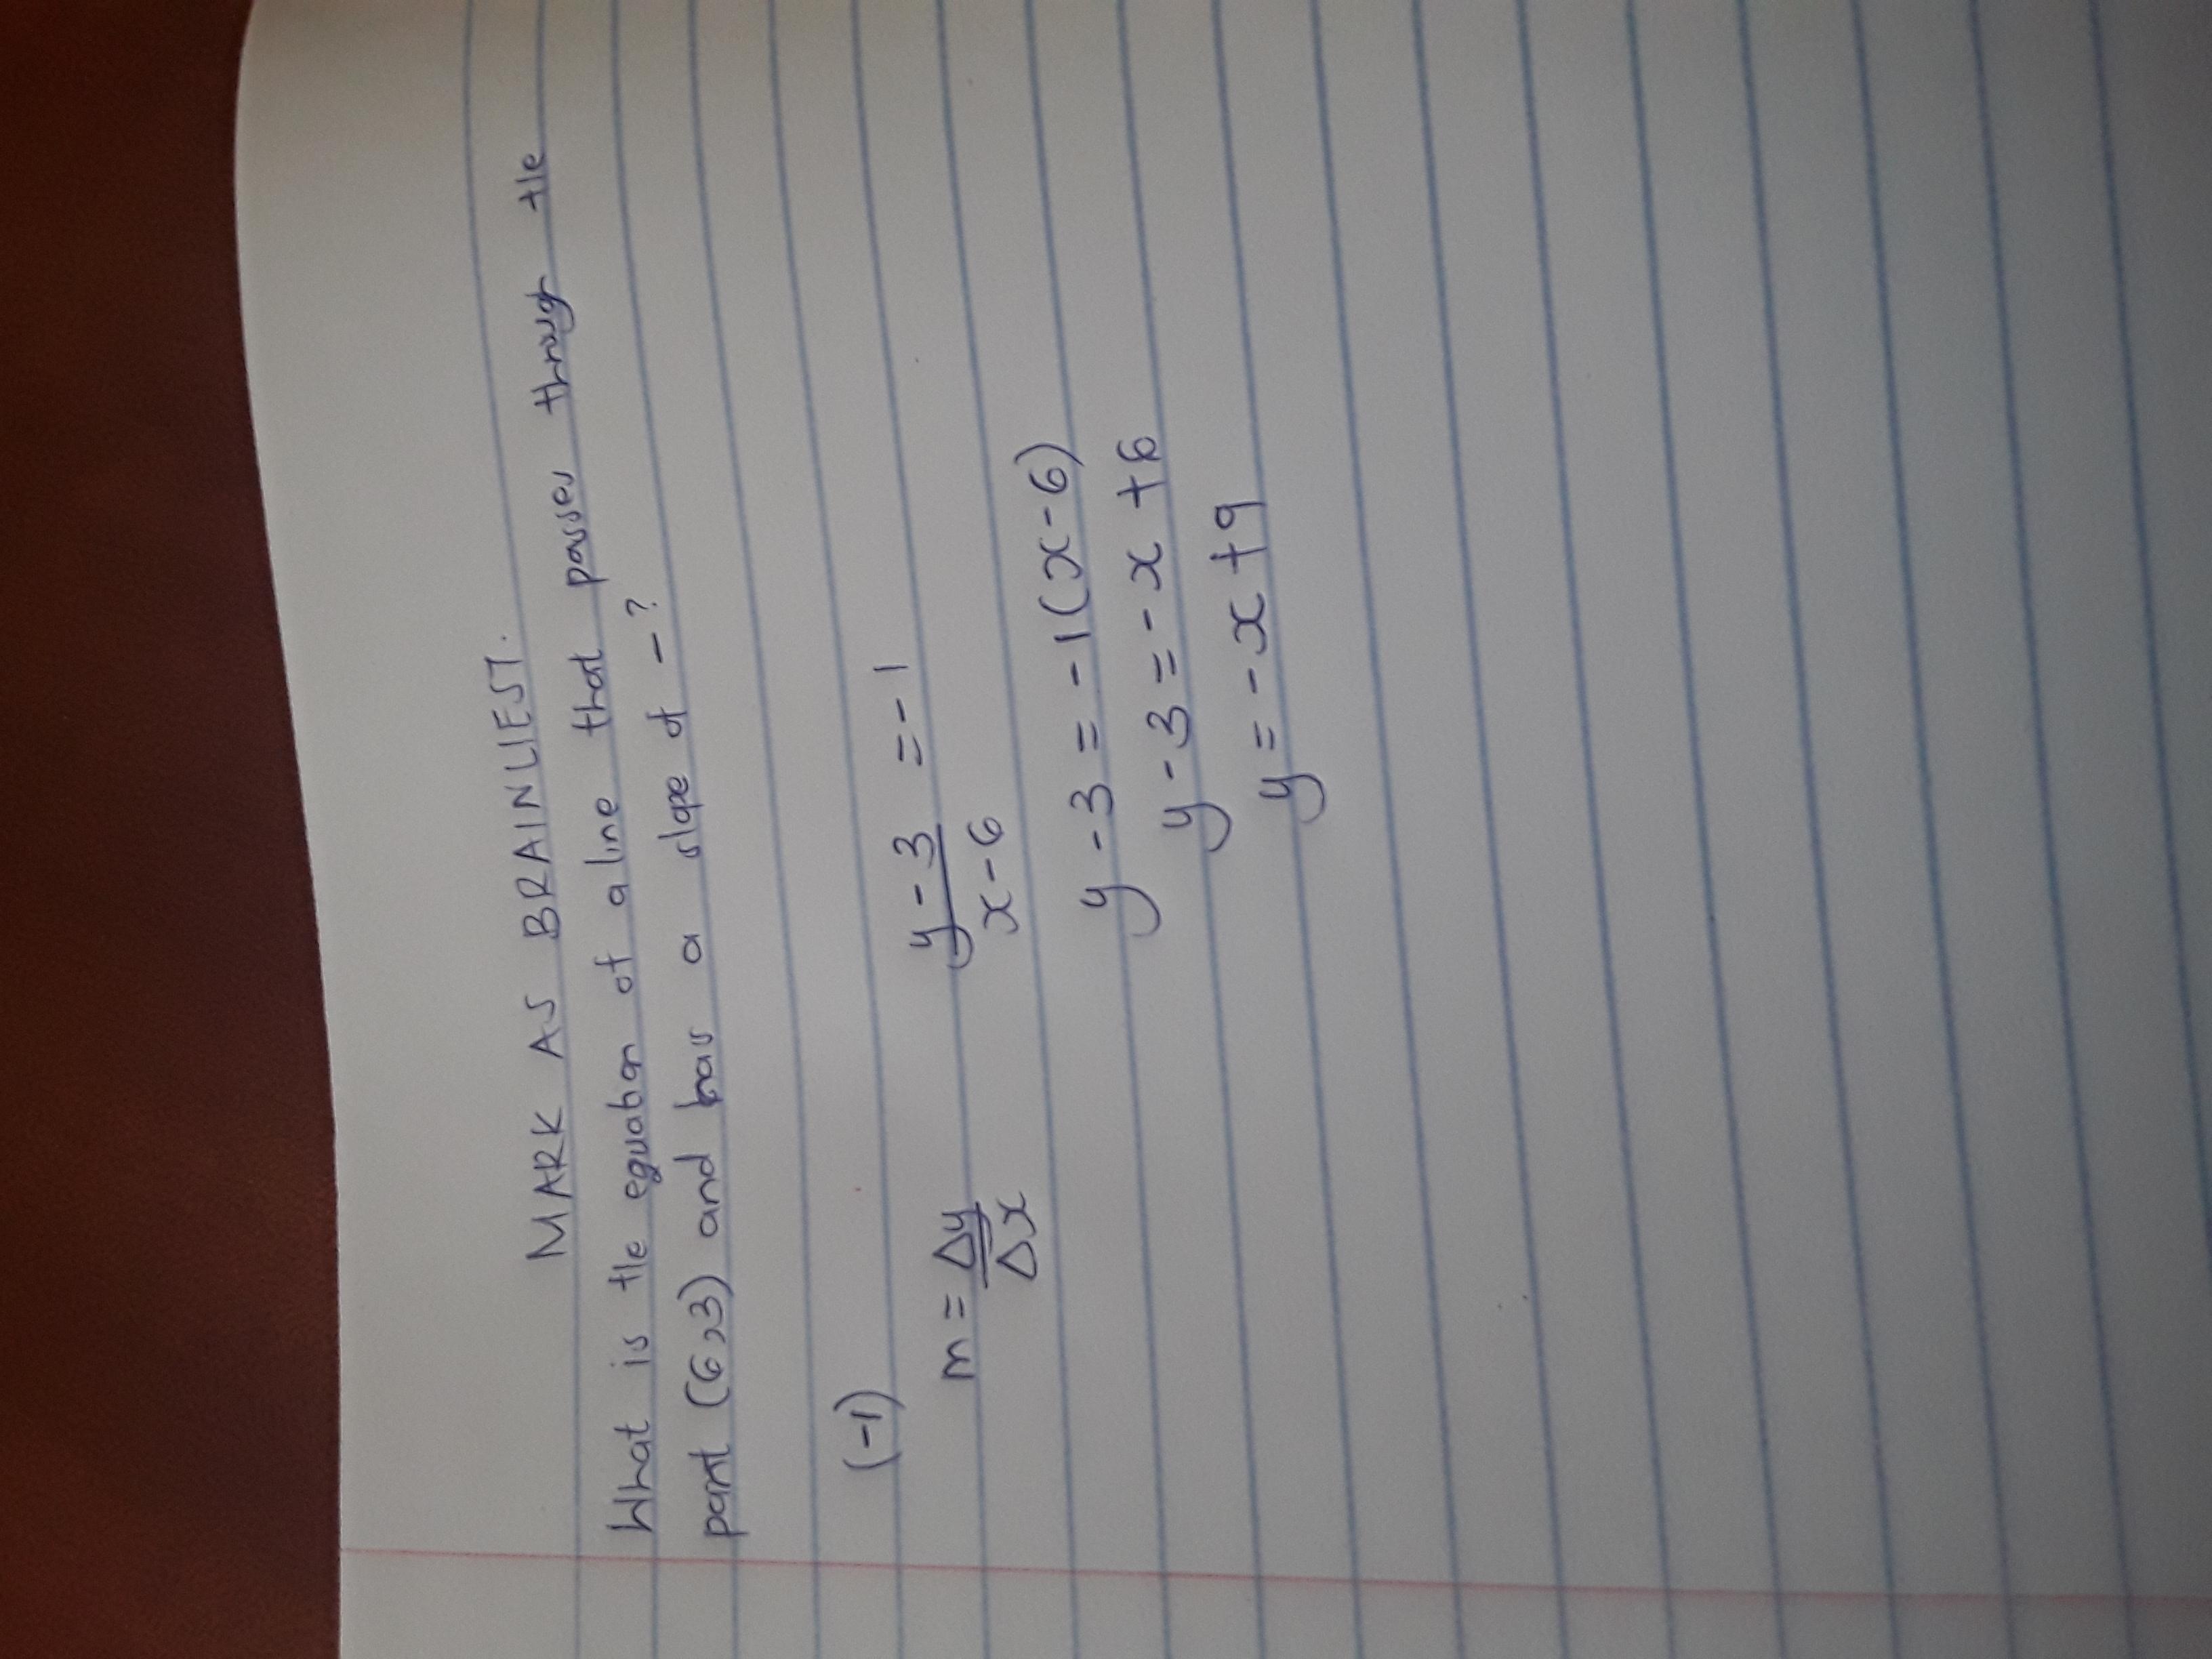 MARK AS BRAINLIEST.
What is the equation of a line that passes through the
point (6,3) and has a slope of - ?
(-1)
m = Δy/Δx    y-3/x-6 = -1
y - 3 = -1(x-6)
y - 3 = -x + 6
y = -x + 9